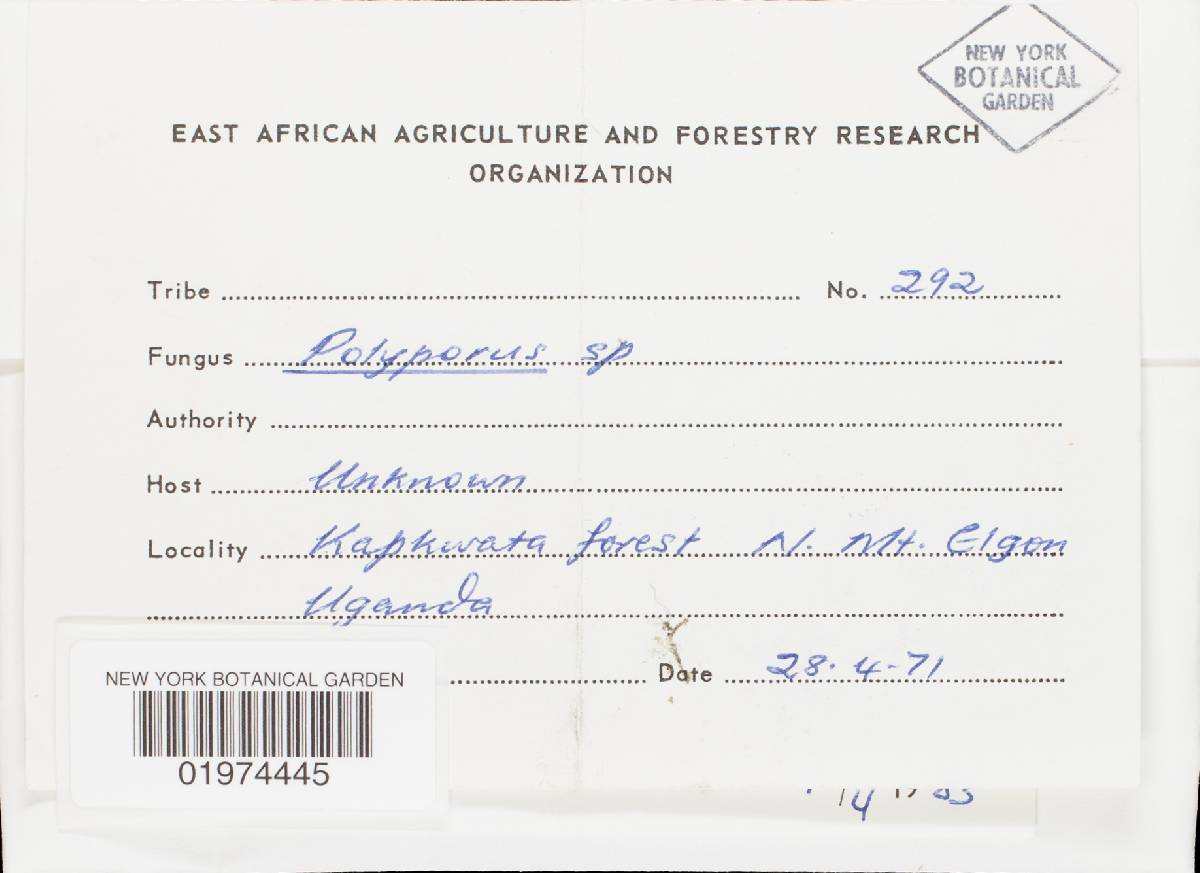 NEW YORK
BOTANICAL
GARDEN
EAST AFRICAN AGRICULTURE AND FORESTRY RESEARCH
ORGANIZATION
Tribe No. 292
Fungus Polyporus sp
Authority
Host Unknown
Locality Kapkwata forest N. Mt. Elgon
Uganda
Date 28.4-71
NEW YORK BOTANICAL GARDEN
01974445